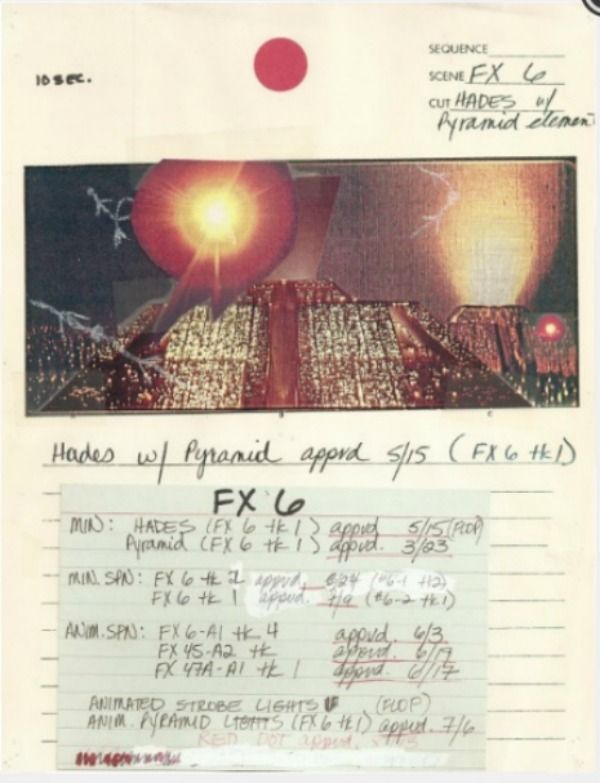 10 SEC.
SEQUENCE
SCENE FX 6
CUT HADES w/
Pyramid element
A B C
Hades w/ Pyramid apprd 5/15 (FX 6 tk 1)
FX 6
MIN: HADES (FX 6 tk 1) appvd 5/15 (FLOP)
Pyramid (FX 6 tk 1) appvd. 3/23
MIN. SPN: FX 6 tk 2 appvd. 6/24 (#6-1 tk2)
FX 6 tk 1 appvd. 7/9 (#6-2 tk.1)
ANIM. SPN: FX 6-A1 tk 4 appvd. 6/3
FX 45-A2 tk appvd. 6/19
FX 47A-A1 tk 1 appvd. 6/17
ANIMATED STROBE LIGHTS (FLOP)
ANIM. PYRAMID LIGHTS (FX 6 tk 1) appvd. 7/6
RED DOT appvd.